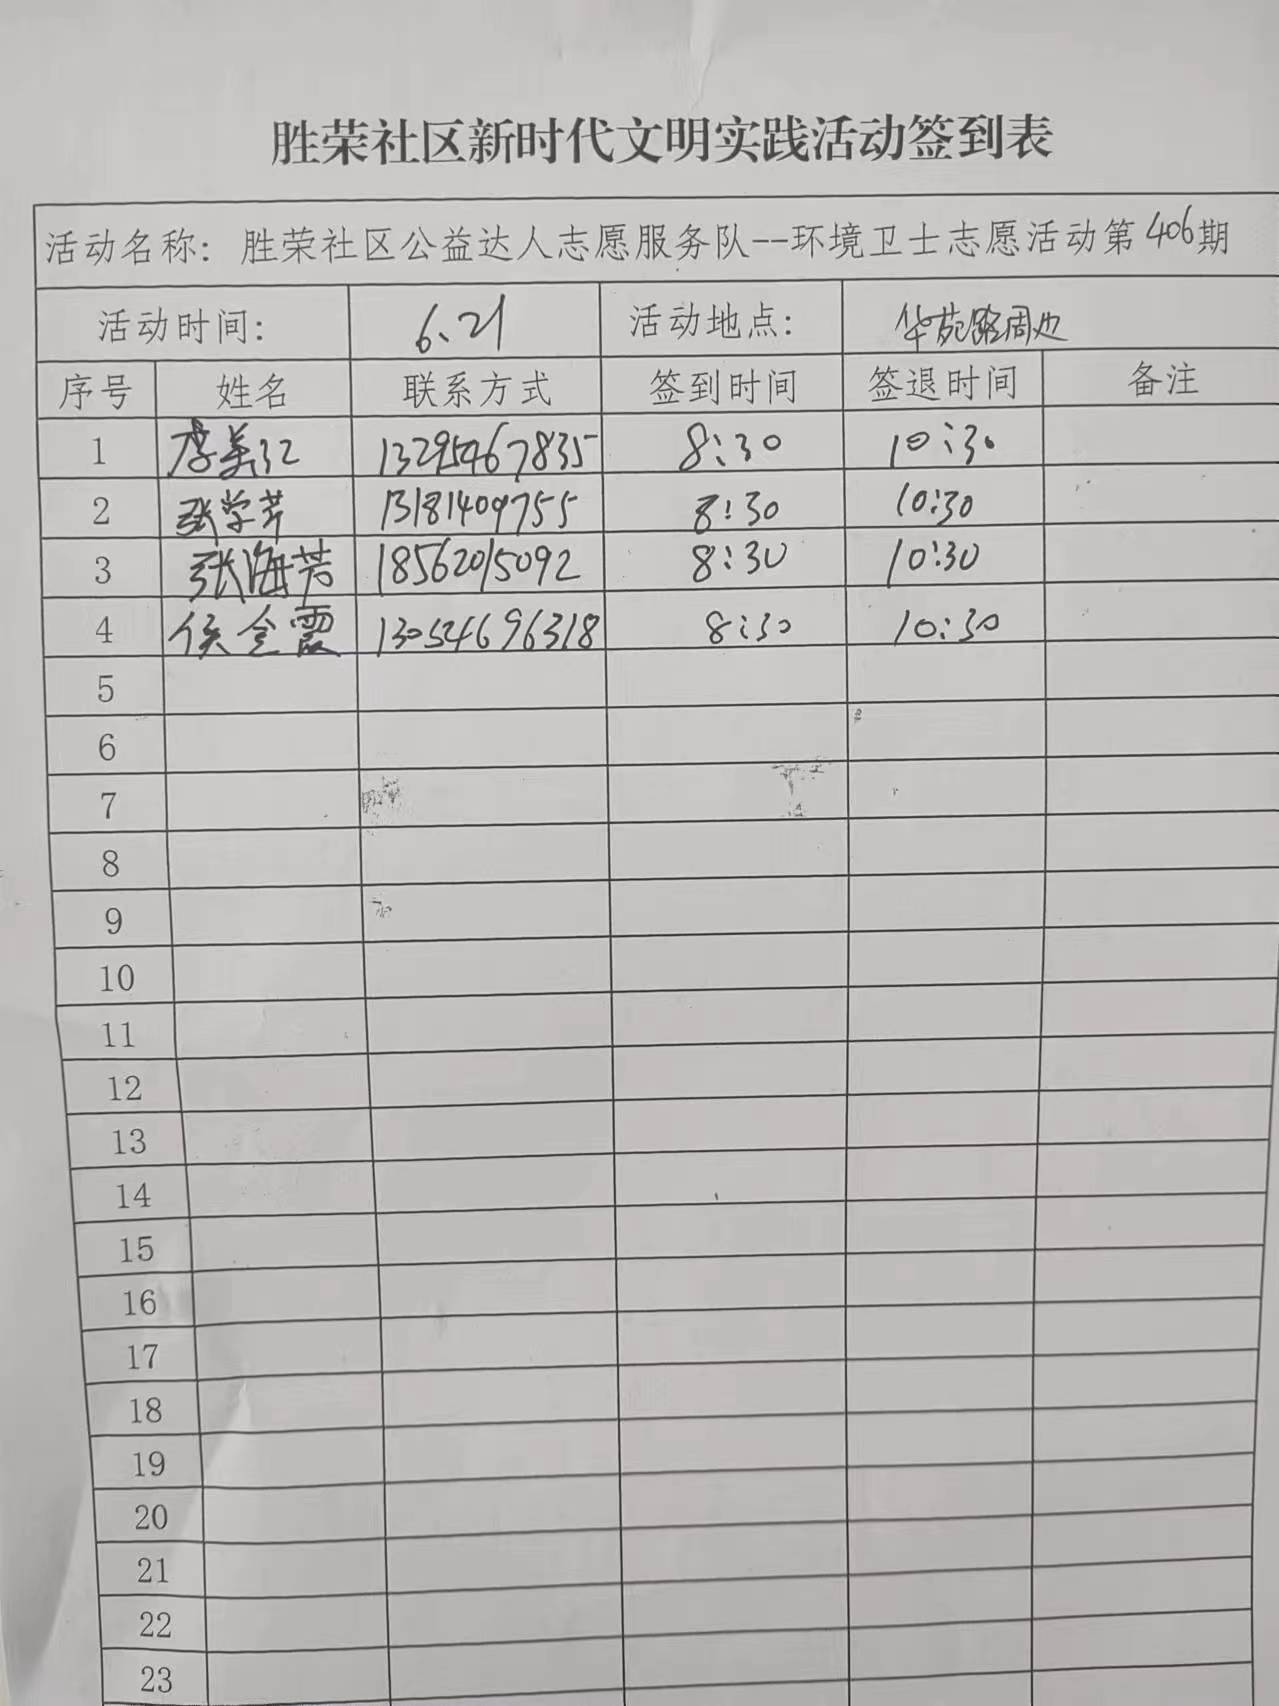 胜荣社区新时代文明实践活动签到表
活动名称：胜荣社区公益达人志愿服务队--环境卫士志愿活动第406期
活动时间： 6.21 活动地点： 华苑路周边
序号 姓名 联系方式 签到时间 签退时间 备注
1 李美江 13295467835 8:30 10:30
2 张学芹 13181409755 8:30 10:30
3 张海芳 18562015092 8:30 10:30
4 侯金霞 13054696318 8:30 10:30
5
6
7
8
9
10
11
12
13
14
15
16
17
18
19
20
21
22
23